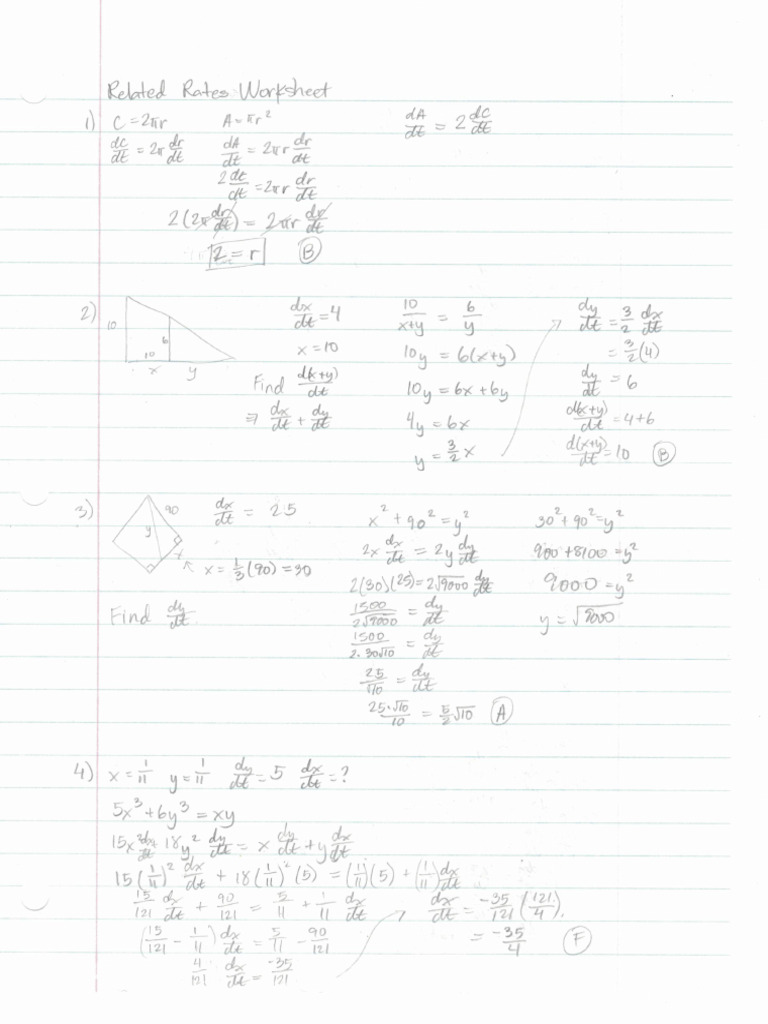 Related Rates Worksheet
1) C = 2πr A = πr² dA/dt = 2 dC/dt
dC/dt = 2π dr/dt dA/dt = 2πr dr/dt
2 dC/dt = 2πr dr/dt
2(2π dr/dt) = 2πr dr/dt
2 = r B
2) 10 6 10 x y
dx/dt = 4
x = 10
Find d(x+y)/dt
⇒ dx/dt + dy/dt
10/(x+y) = 6/y
10y = 6(x+y)
10y = 6x + 6y
4y = 6x
y = 3/2 x
dy/dt = 3/2 dx/dt
= 3/2 (4)
dy/dt = 6
d(x+y)/dt = 4+6
d(x+y)/dt = 10 B
3) 90 y x
dx/dt = 25
x = 1/3 (90) = 30
Find dy/dt
x² + 90² = y²
2x dx/dt = 2y dy/dt
2(30)(25) = 2√9000 dy/dt
1500/(2√9000) = dy/dt
1500/(2·30√10) = dy/dt
25/√10 = dy/dt
25·√10/10 = 5/2 √10 A
30² + 90² = y²
900 + 8100 = y²
9000 = y²
y = √9000
4) x = 1/11 y = 1/11 dy/dt = 5 dx/dt = ?
5x³ + 6y³ = xy
15x² dx/dt + 18y² dy/dt = x dy/dt + y dx/dt
15(1/11)² dx/dt + 18(1/11)² (5) = (1/11)(5) + (1/11) dx/dt
15/121 dx/dt + 90/121 = 5/11 + 1/11 dx/dt
(15/121 - 1/11) dx/dt = 5/11 - 90/121
4/121 dx/dt = -35/121
dx/dt = -35/121 (121/4)
= -35/4 F